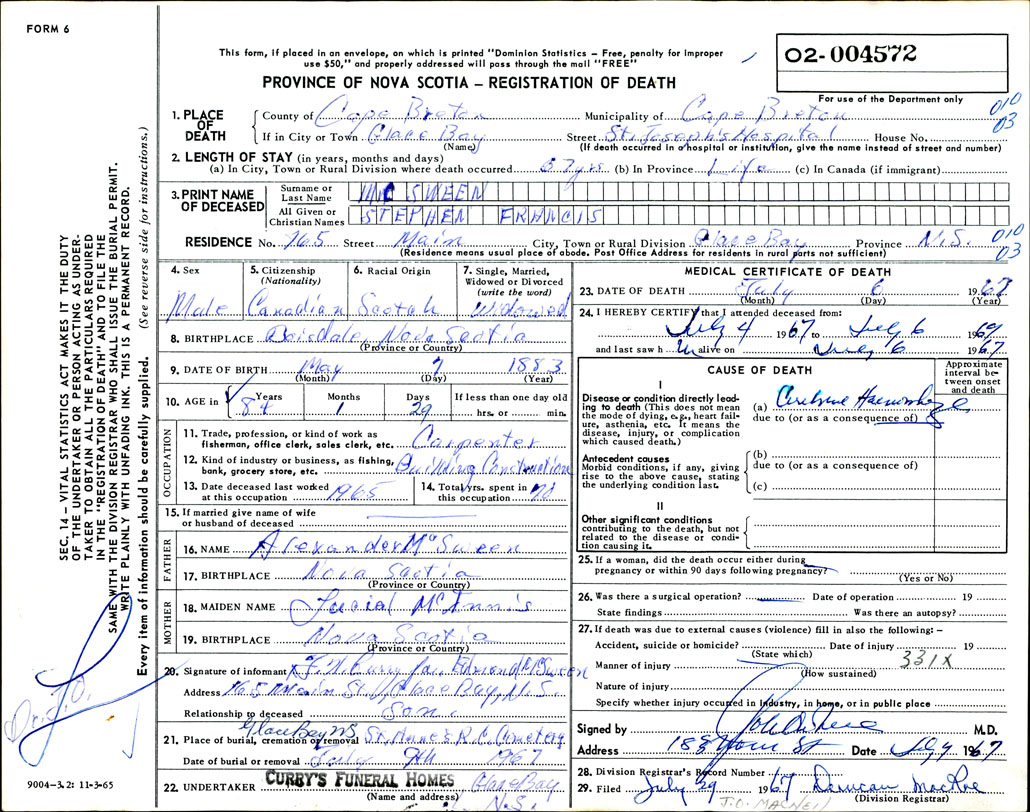 FORM 6
This form, if placed in an envelope, on which is printed "Dominion Statistics – Free, penalty for improper
use $50," and properly addressed will pass through the mail "FREE"
PROVINCE OF NOVA SCOTIA – REGISTRATION OF DEATH
02-004572
For use of the Department only
010
03
1. PLACE OF DEATH
County of Cape Breton Municipality of Cape Breton
If in City or Town Glace Bay Street St. Joseph's Hospital House No.
(Name) (If death occurred in a hospital or institution, give the name instead of street and number)
2. LENGTH OF STAY (in years, months and days)
(a) In City, Town or Rural Division where death occurred 67 yrs (b) In Province Life (c) In Canada (if immigrant)
3. PRINT NAME OF DECEASED
Surname or Last Name Mc SWEEN
All Given or Christian Names STEPHEN FRANCIS
RESIDENCE No. 765 Street Main City, Town or Rural Division Glace Bay Province N.S.
010
03
(Residence means usual place of abode. Post Office Address for residents in rural parts not sufficient)
4. Sex
Male
5. Citizenship
(Nationality)
Canadian
6. Racial Origin
Scotch
7. Single, Married,
Widowed or Divorced
(write the word)
Widowed
8. BIRTHPLACE Boisdale Nova Scotia
(Province or Country)
9. DATE OF BIRTH May 7 1883
(Month) (Day) (Year)
10. AGE in 84 Years 1 Months 29 Days
If less than one day old
hrs. or min.
OCCUPATION
11. Trade, profession, or kind of work as
fisherman, office clerk, sales clerk, etc. Carpenter
12. Kind of industry or business, as fishing,
bank, grocery store, etc. Building Construction
13. Date deceased last worked
at this occupation 1965
14. Total yrs. spent in
this occupation
15. If married give name of wife
or husband of deceased
FATHER
16. NAME Alexander McSween
17. BIRTHPLACE Nova Scotia
(Province or Country)
MOTHER
18. MAIDEN NAME McInnis
19. BIRTHPLACE Nova Scotia
(Province or Country)
20. Signature of informant Edmund McSween
Address 765 Main St., Glace Bay, N.S.
Relationship to deceased Son.
Glace Bay NS
21. Place of burial, cremation or removal St. Anne's R.C. Cemetery
Date of burial or removal July 9th 1967
22. UNDERTAKER CURRY'S FUNERAL HOMES Glace Bay
(Name and address) N.S.
MEDICAL CERTIFICATE OF DEATH
23. DATE OF DEATH July 6 1967
(Month) (Day) (Year)
24. I HEREBY CERTIFY that I attended deceased from:
July 4 1967 to July 6 1967
and last saw him alive on July 6 1967
CAUSE OF DEATH
Approximate
interval be-
tween onset
and death
I
Disease or condition directly lead-
ing to death (This does not mean
the mode of dying, e.g., heart fail-
ure, asthenia, etc. It means the
disease, injury, or complication
which caused death.)
(a) Cerebral Haemorrhage
due to (or as a consequence of)
Antecedent causes
Morbid conditions, if any, giving
rise to the above cause, stating
the underlying condition last.
(b)
due to (or as a consequence of)
(c)
II
Other significant conditions
contributing to the death, but not
related to the disease or condi-
tion causing it.
25. If a woman, did the death occur either during
pregnancy or within 90 days following pregnancy?
(Yes or No)
26. Was there a surgical operation? Date of operation 19
State findings Was there an autopsy?
27. If death was due to external causes (violence) fill in also the following: –
Accident, suicide or homicide? Date of injury 19
(State which) 331X
Manner of injury
(How sustained)
Nature of injury
Specify whether injury occurred in industry, in home, or in public place
Signed by M.D.
Address 188 York St Date 1967
28. Division Registrar's Record Number
29. Filed July 29 1967 Duncan MacRae
(Division Registrar)
J.O. MACNEIL
SEC. 14 – VITAL STATISTICS ACT MAKES IT THE DUTY
OF THE UNDERTAKER OR PERSON ACTING AS UNDER-
TAKER TO OBTAIN ALL THE PARTICULARS REQUIRED
IN THE "REGISTRATION OF DEATH" AND TO FILE THE
SAME WITH THE DIVISION REGISTRAR WHO SHALL ISSUE THE BURIAL PERMIT.
WRITE PLAINLY WITH UNFADING INK. THIS IS A PERMANENT RECORD.
Every item of information should be carefully supplied. (See reverse side for instructions.)
9004-3.2: 11-3-65